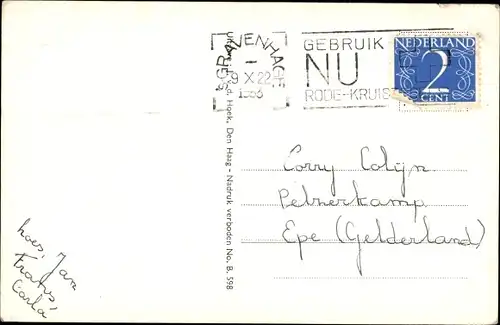 'S GRAVENHAGE
GEBRUIK
NU
RODE-KRUIS
NEDERLAND
2
CENT
Den Haag - Nadruk verboden No. B. 598
Corry Colijn
Pelzerkamp
Epe (Gelderland)
hoes, Jan
Frans,
Carla